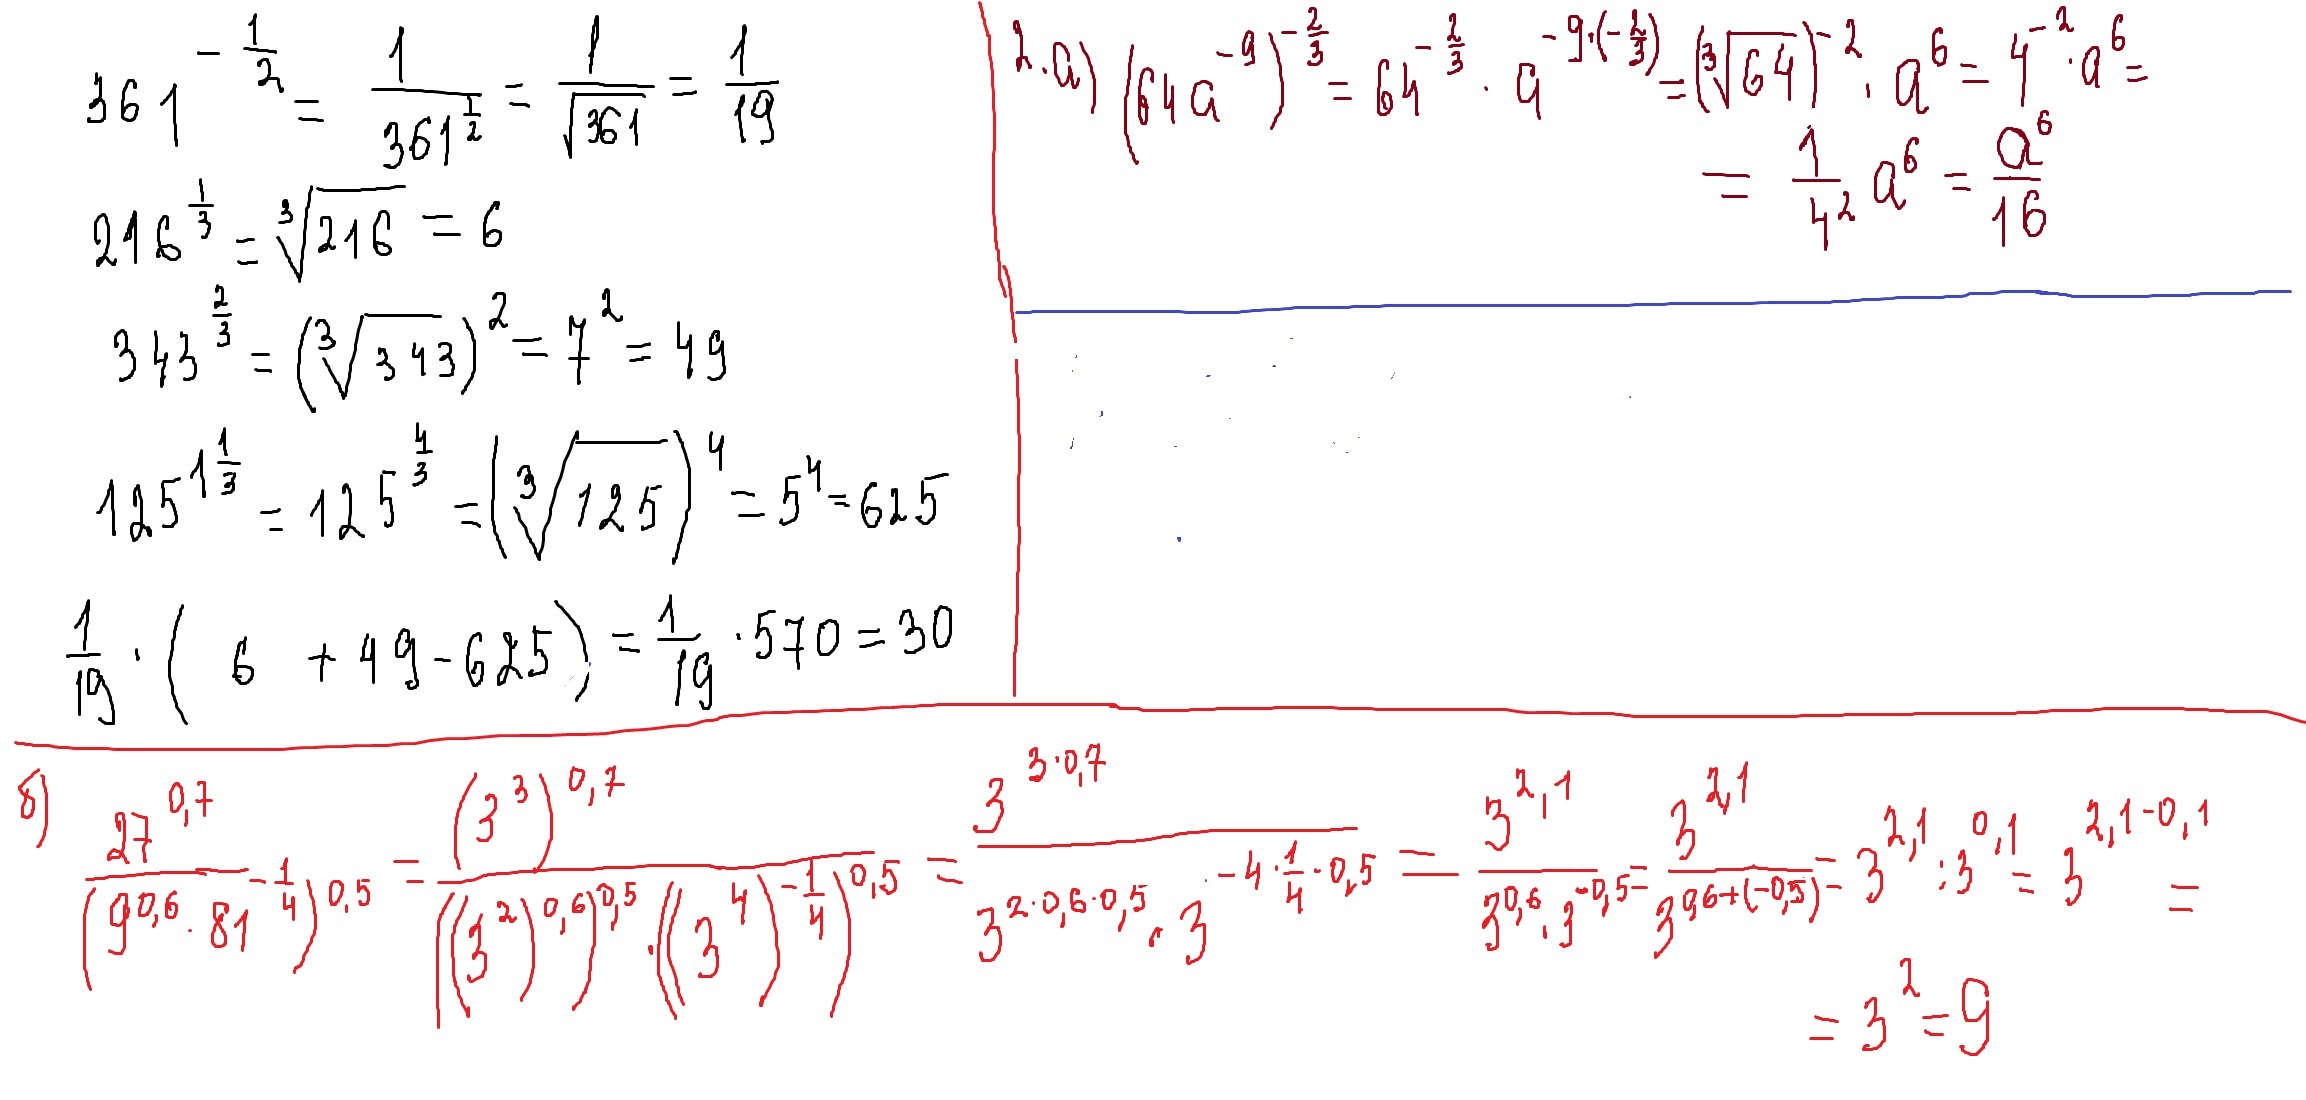 361^{-\frac{1}{2}} = \frac{1}{361^{\frac{1}{2}}} = \frac{1}{\sqrt{361}} = \frac{1}{19}
216^{\frac{1}{3}} = \sqrt[3]{216} = 6
343^{\frac{2}{3}} = (\sqrt[3]{343})^2 = 7^2 = 49
125^{1\frac{1}{3}} = 125^{\frac{4}{3}} = (\sqrt[3]{125})^4 = 5^4 = 625
\frac{1}{19} · ( 6 + 49 - 625 ) = \frac{1}{19} · 570 = 30
2. а) (64a^{-9})^{-\frac{2}{3}} = 64^{-\frac{2}{3}} · a^{-9·(-\frac{2}{3})} = (\sqrt[3]{64})^{-2} · a^6 = 4^{-2} · a^6 =
= \frac{1}{4^2} a^6 = \frac{a^6}{16}
б) \frac{27^{0,7}}{(9^{0,6} · 81^{-\frac{1}{4}})^{0,5}} = \frac{(3^3)^{0,7}}{((3^2)^{0,6})^{0,5} · ((3^4)^{-\frac{1}{4}})^{0,5}} = \frac{3^{3·0,7}}{3^{2·0,6·0,5} · 3^{-4·\frac{1}{4}·0,5}} = \frac{3^{2,1}}{3^{0,6} · 3^{-0,5}} = \frac{3^{2,1}}{3^{0,6+(-0,5)}} = 3^{2,1} : 3^{0,1} = 3^{2,1-0,1} =
= 3^2 = 9